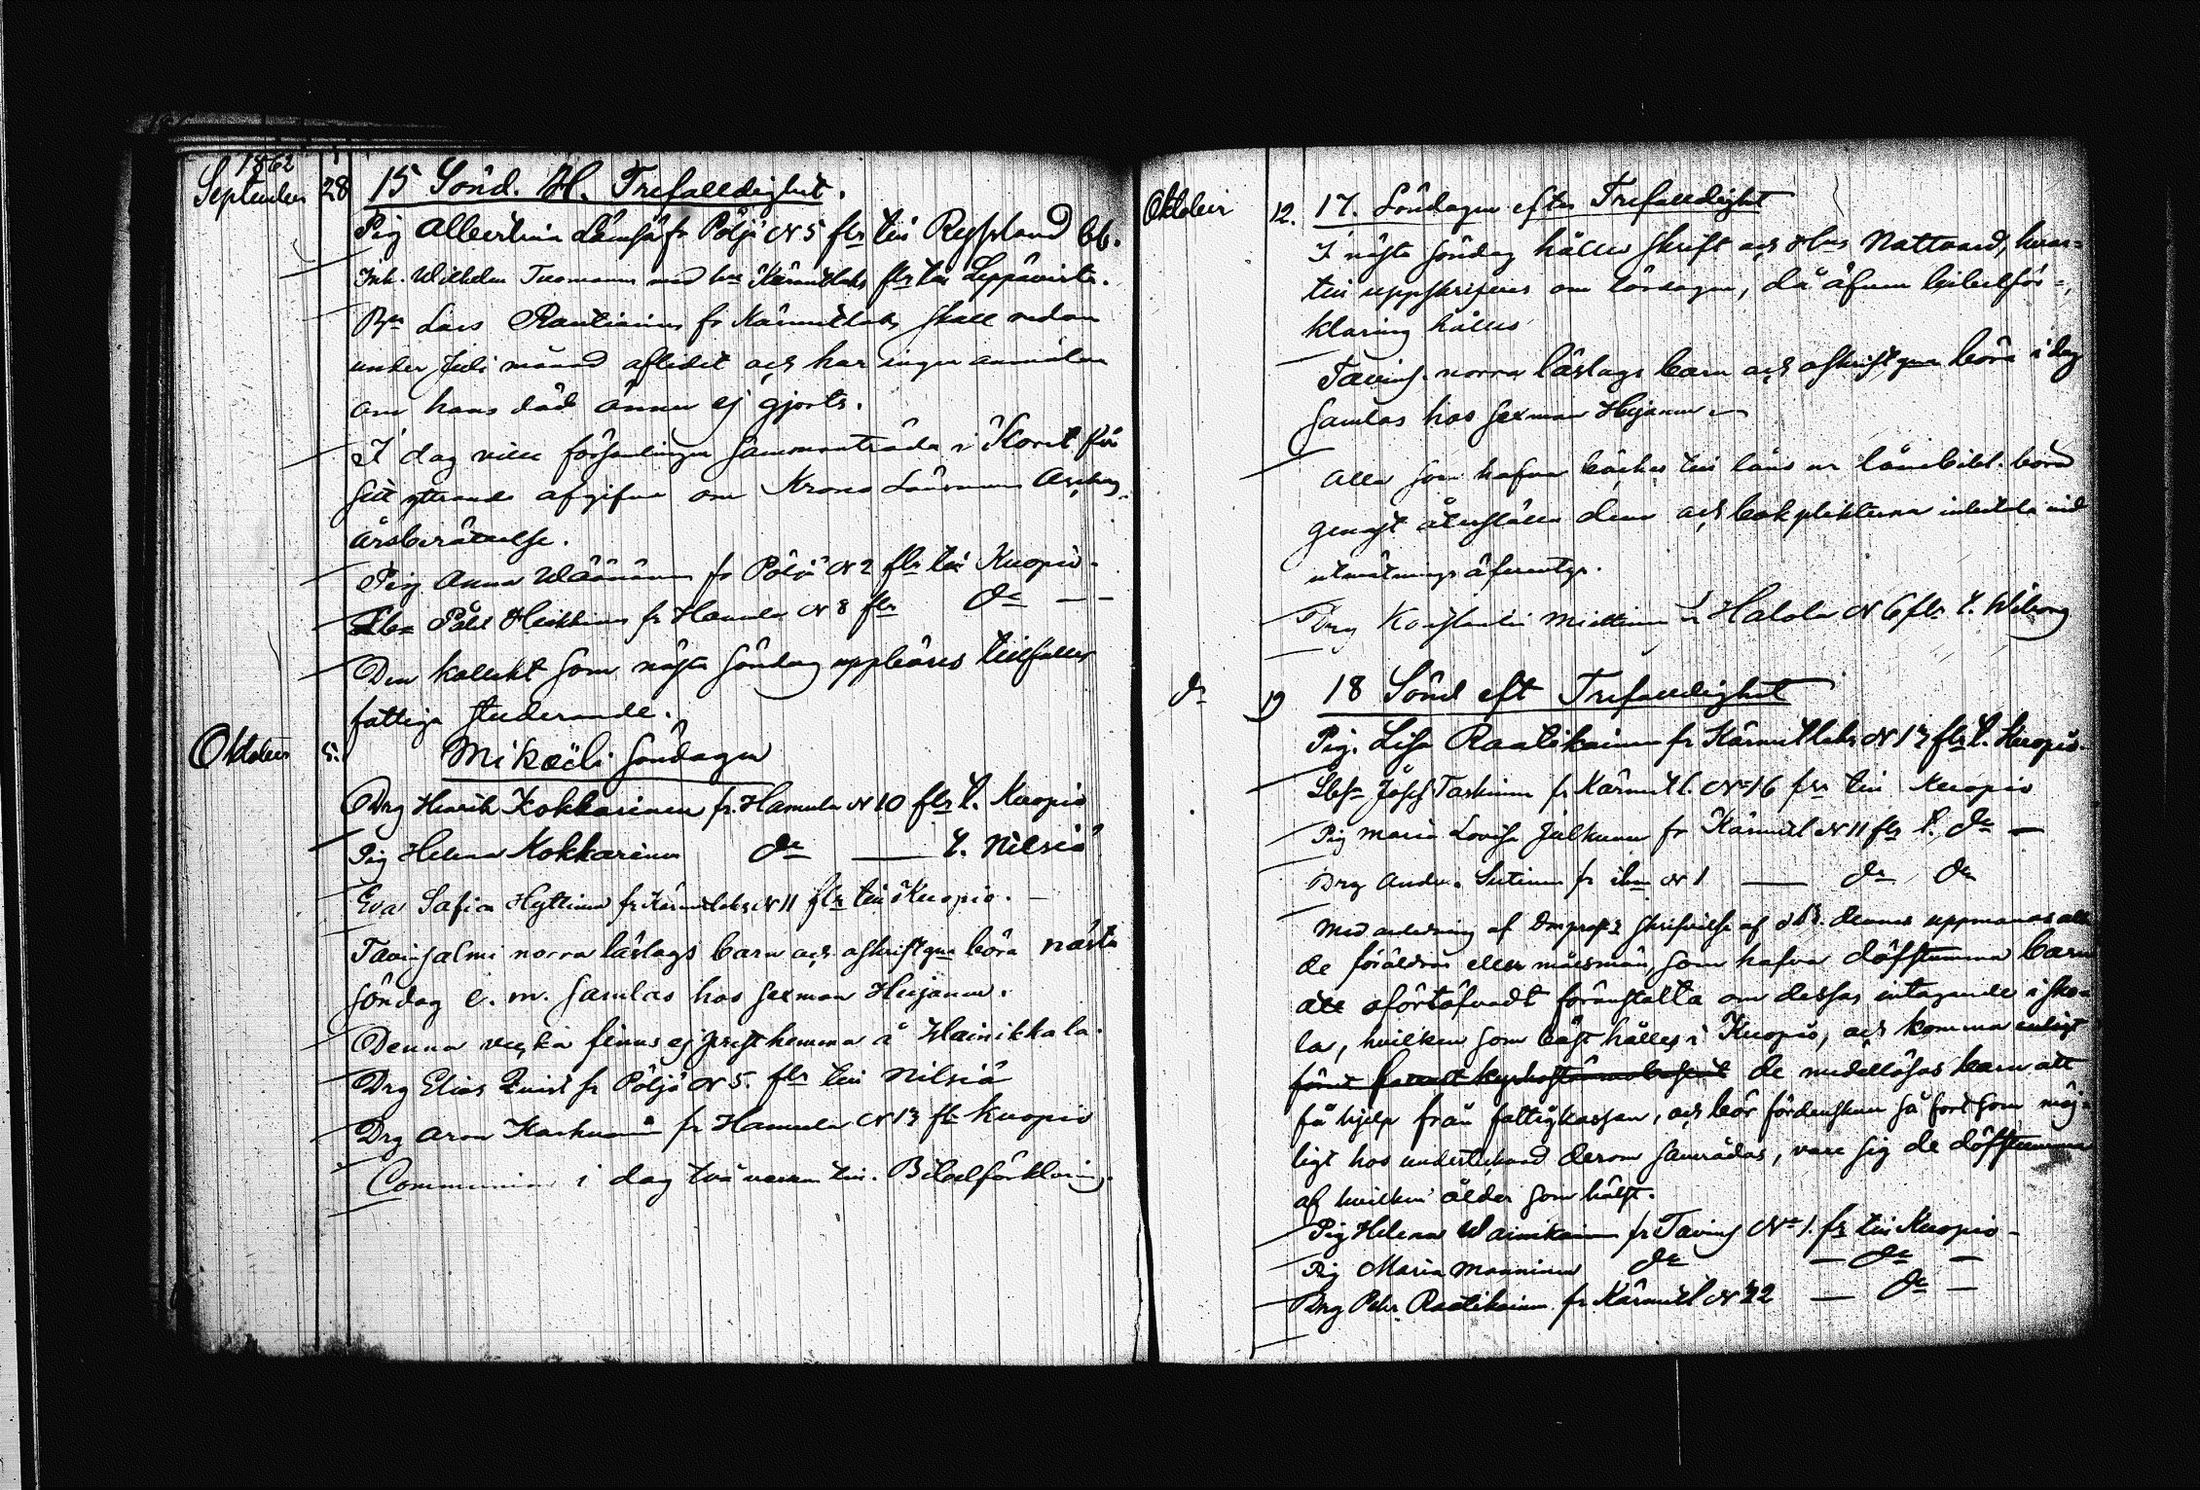 1862
September 28 15 Sönd. Ef. Trefalldighet.
Pig Albertina Lämsä fr Pöljä N 5 flr till Ryssland bb.
Inh. Wilhelm Tuomainen med hu Kärmetlaks flr till Leppävirta.
Bn Lars Rautiainen fr Kärmetlaks skall redan
under Juli månad aflidit och har ingen anmälan
om hans död ännu ej gjorts.
I dag wille församlingen sammanträda i Koret för
sitt yttrande afgifva om Krono Länsman
årsberättelse.
Pig Anna Wäänänen fr Pöljä N 2 flr till Kuopio.
Påhl Heikkinen fr Hamula N 8 flr do — —
Den kollekt som nästa söndag uppbäres tillfaller
fattiga studerande.
Oktober 5. Mikaeli Söndagen
Drg Henrik Kokkarinen fr. Hamula N 10 flr t. Kuopio
Pig Helena Kokkarinen do — t. Nilsiä
Eva Safia Hyttinen fr Kärmetlaks N 11 flr till Kuopio. —
Tavinsalmi norra läslags barn och askriftqna böra nästa
söndag e. m. samlas hos sexman Heijanen.
Denna vecka finnes ej prest hemma å Hainikkala.
Drg Elias Qvist fr Pöljä N 5. flr till Nilsiä
Drg Aron Karhunen fr Hamula N 13 flr Kuopio
Communion i dag två veckor till. Bibelförklaring.
Oktober 12. 17. Söndagen efter Trefalldighet
I nästa söndag hålles skrift och Hrs Nattvard, hvar=
till uppskrifves om lördagen, då äfven bibelför=
klaring hålles
Tavins. norra läslags barn och askriftqna böra i dag
samlas hos sexman Heijanen.
Alla som hafva böcker till låns ur lånebibl. böra
genast återställa dem och bokplikterna inbetala vid
utmätnings äfventyr.
Drg Konstantin Miettinen fr Halola N 6 flr t. Wiborg
do 19 18 Sönd eft Trefalldighet
Pig. Lisa Raatikainen fr Kärmetlaks N 17 flr t. Kuopio.
Josef Taskinen fr Kärmetl. N 16 flr till Kuopio
Pig Maria Lovisa Julkunen fr Kärmetl N 11 flr t. do —
Drg Andr. Sutinen fr ibm N 1 — do do
Med anledning af Domprost: skrifvelse af d dennes uppmanas alla
de föräldrar eller målsmän, som hafva döfstumma barn
att oförtöfvadt föranstalta om dessas intagande i sko=
la, hvilken som bäst hålles i Kuopio, och komma enligt
de medellösas barn att
få hjelp från fattigkassan, och bör fördenskull så fort som möj=
ligt hos undertecknad derom samrådas, vare sig de döfstumma
af hvilken ålder som hälst.
Pig Helena Wainikainen fr Tavins N 1. flr till Kuopio —
Pig Maria Manninen do — do —
Drg Pehr Raatikainen fr Kärmetl N 22 — do —